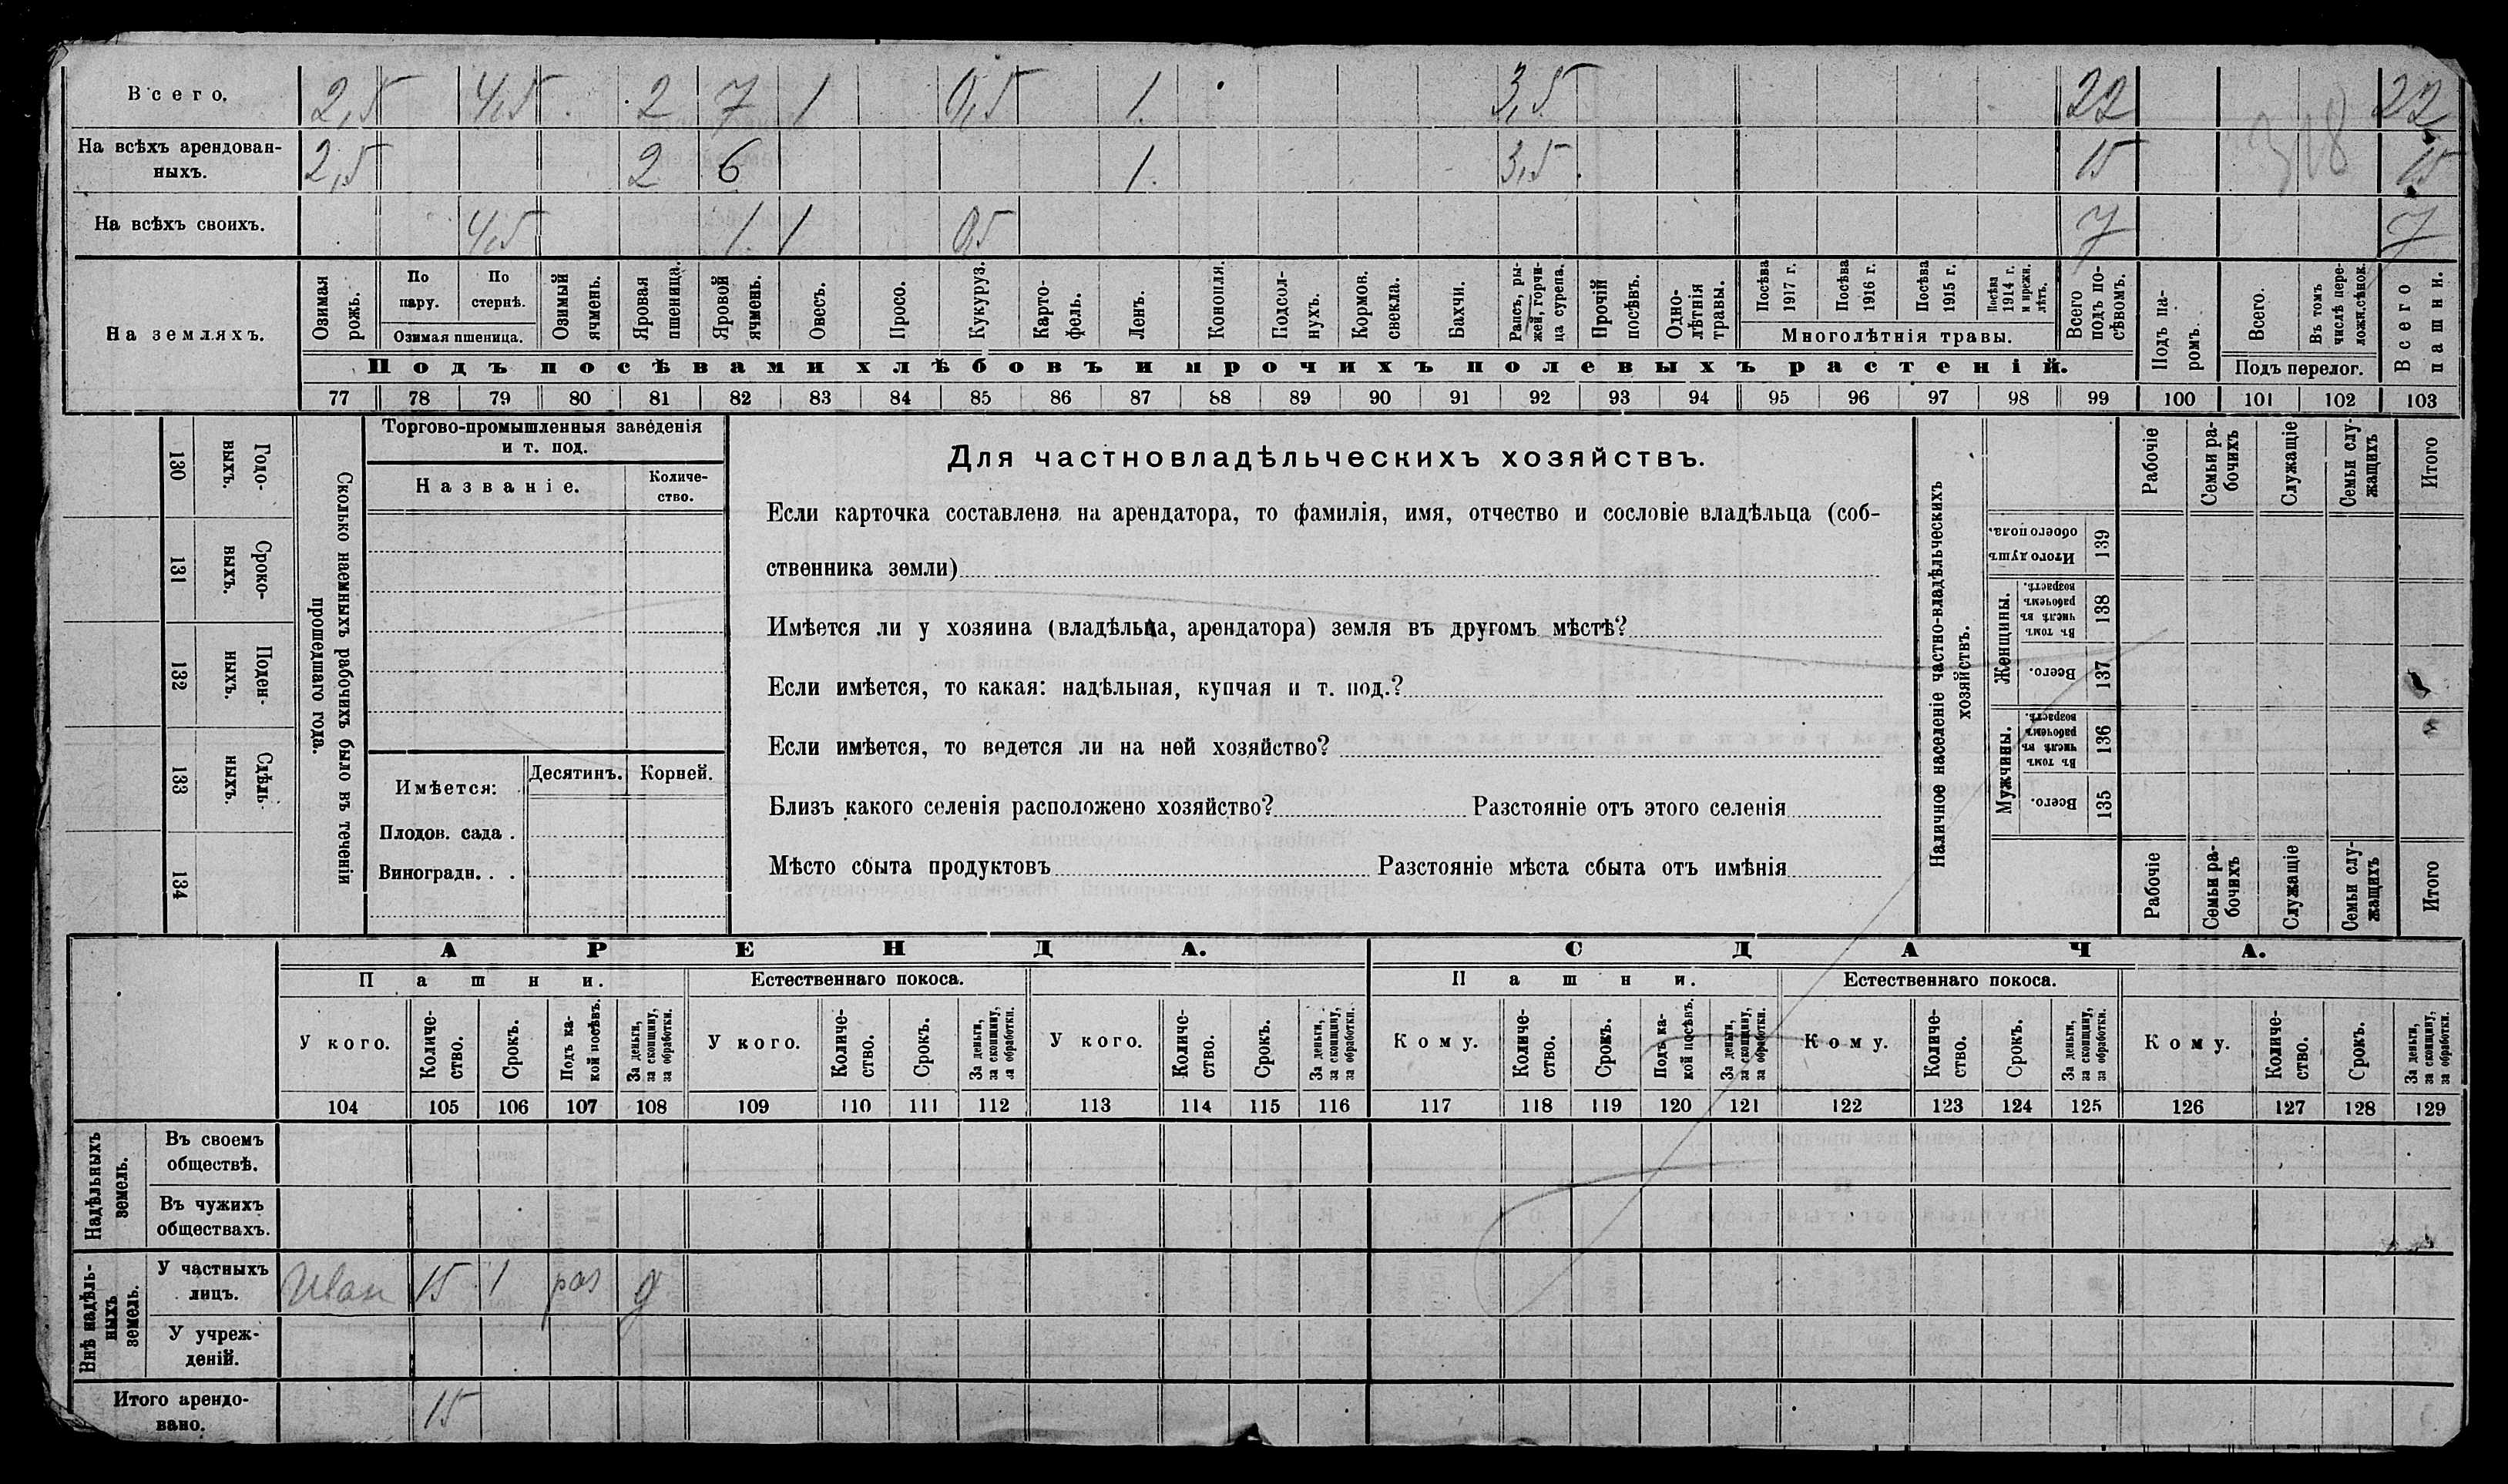 Всего. 2,5 4,5 2 7 1 0,5 1. 3,5 22 22
На всѣхъ арендован-
ныхъ. 2,5 2 6 1. 3,5. 15 15
На всѣхъ своихъ. 4,5 1. 1 0,5 7 7
На земляхъ.
Озимая рожь.
По пару.
По стернѣ.
Озимая пшеница.
Озимый ячмень.
Яровая пшеница.
Яровой ячмень.
Овесъ.
Просо.
Кукуруз.
Карто-
фель.
Ленъ.
Конопля.
Подсол-
нухъ.
Кормов.
свекла.
Бахчи.
Рапсъ, ры-
жей, горчи-
ца сурепа.
Прочій посѣвъ.
Одно-
лѣтнія
травы.
Посѣва 1917 г.
Посѣва 1916 г.
Посѣва 1915 г.
Посѣва 1914 г. и прежн. лѣтъ.
Многолѣтнія травы.
Всего подъ по-
сѣвомъ.
Подъ па-
ромъ.
Всего.
Въ томъ числѣ пере-
ложн. сѣнок.
Подъ перелог.
Всего пашни.
Подъ посѣвами хлѣбовъ и прочихъ полевыхъ растеній.
77 78 79 80 81 82 83 84 85 86 87 88 89 90 91 92 93 94 95 96 97 98 99 100 101 102 103
130 Годо-
выхъ.
131 Сроко-
выхъ.
132 Поден-
ныхъ.
133 Сдѣль-
ныхъ.
134
Сколько наемныхъ рабочихъ было въ теченіи
прошедшаго года.
Торгово-промышленныя заведенія
и т. под.
Названіе.
Количе-
ство.
Имѣется:
Десятинъ.
Корней.
Плодов. сада .
Виноградн. . .
Для частновладѣльческихъ хозяйствъ.
Если карточка составлена на арендатора, то фамилія, имя, отчество и сословіе владѣльца (соб-
ственника земли)
Имѣется ли у хозяина (владѣльца, арендатора) земля въ другомъ мѣстѣ?
Если имѣется, то какая: надѣльная, купчая и т. под.?
Если имѣется, то ведется ли на ней хозяйство?
Близъ какого селенія расположено хозяйство? Разстояніе отъ этого селенія
Мѣсто сбыта продуктовъ Разстояніе мѣста сбыта отъ имѣнія
Наличное населеніе частно-владѣльческихъ
хозяйствъ.
Рабочіе
Семьи ра-
бочихъ
Служащіе
Семьи слу-
жащихъ
Итого
Итого душъ
обоего пола.
139
Женщины.
Въ томъ числѣ въ рабочемъ возрастѣ.
138
Всего.
137
Мужчины.
Въ томъ числѣ въ рабочемъ возрастѣ.
136
Всего.
135
Рабочіе
Семьи ра-
бочихъ
Служащіе
Семьи слу-
жащихъ
Итого
АРЕНДА. СДАЧА.
Пашни. Естественнаго покоса. Пашни. Естественнаго покоса.
У кого.
Количе-
ство.
Срокъ.
Подъ ка-
кой посѣвъ.
За деньги,
за скопщину,
за обработки.
У кого.
Количе-
ство.
Срокъ.
За деньги,
за скопщину,
за обработки.
У кого.
Количе-
ство.
Срокъ.
За деньги,
за скопщину,
за обработки.
Кому.
Количе-
ство.
Срокъ.
Подъ ка-
кой посѣвъ.
За деньги,
за скопщину,
за обработки.
Кому.
Количе-
ство.
Срокъ.
За деньги,
за скопщину,
за обработки.
Кому.
Количе-
ство.
Срокъ.
За деньги,
за скопщину,
за обработки.
104 105 106 107 108 109 110 111 112 113 114 115 116 117 118 119 120 121 122 123 124 125 126 127 128 129
Надѣльныхъ
земель.
Въ своемъ
обществѣ.
Въ чужихъ
обществахъ.
Внѣ надѣль-
ныхъ
земель.
У частныхъ
лицъ. Иван 15 1 раз д
У учреж-
деній.
Итого арендо-
вано. 15